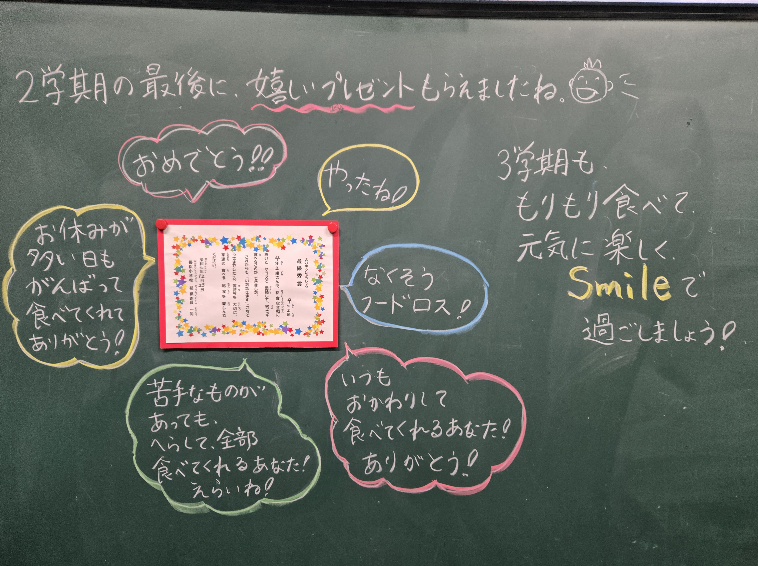 2学期の最後に、嬉しいプレゼントもらえましたね。
おめでとう!!
やったね!
お休みが
多い日も
がんばって
食べてくれて
ありがとう!
なくそう
フードロス!
苦手なものが
あっても、
へらして、全部
食べてくれるあなた!
えらいね!
いつも
おかわりして
食べてくれるあなた!
ありがとう!
3学期も、
もりもり食べて、
元気に楽しく
Smileで
過ごしましょう!